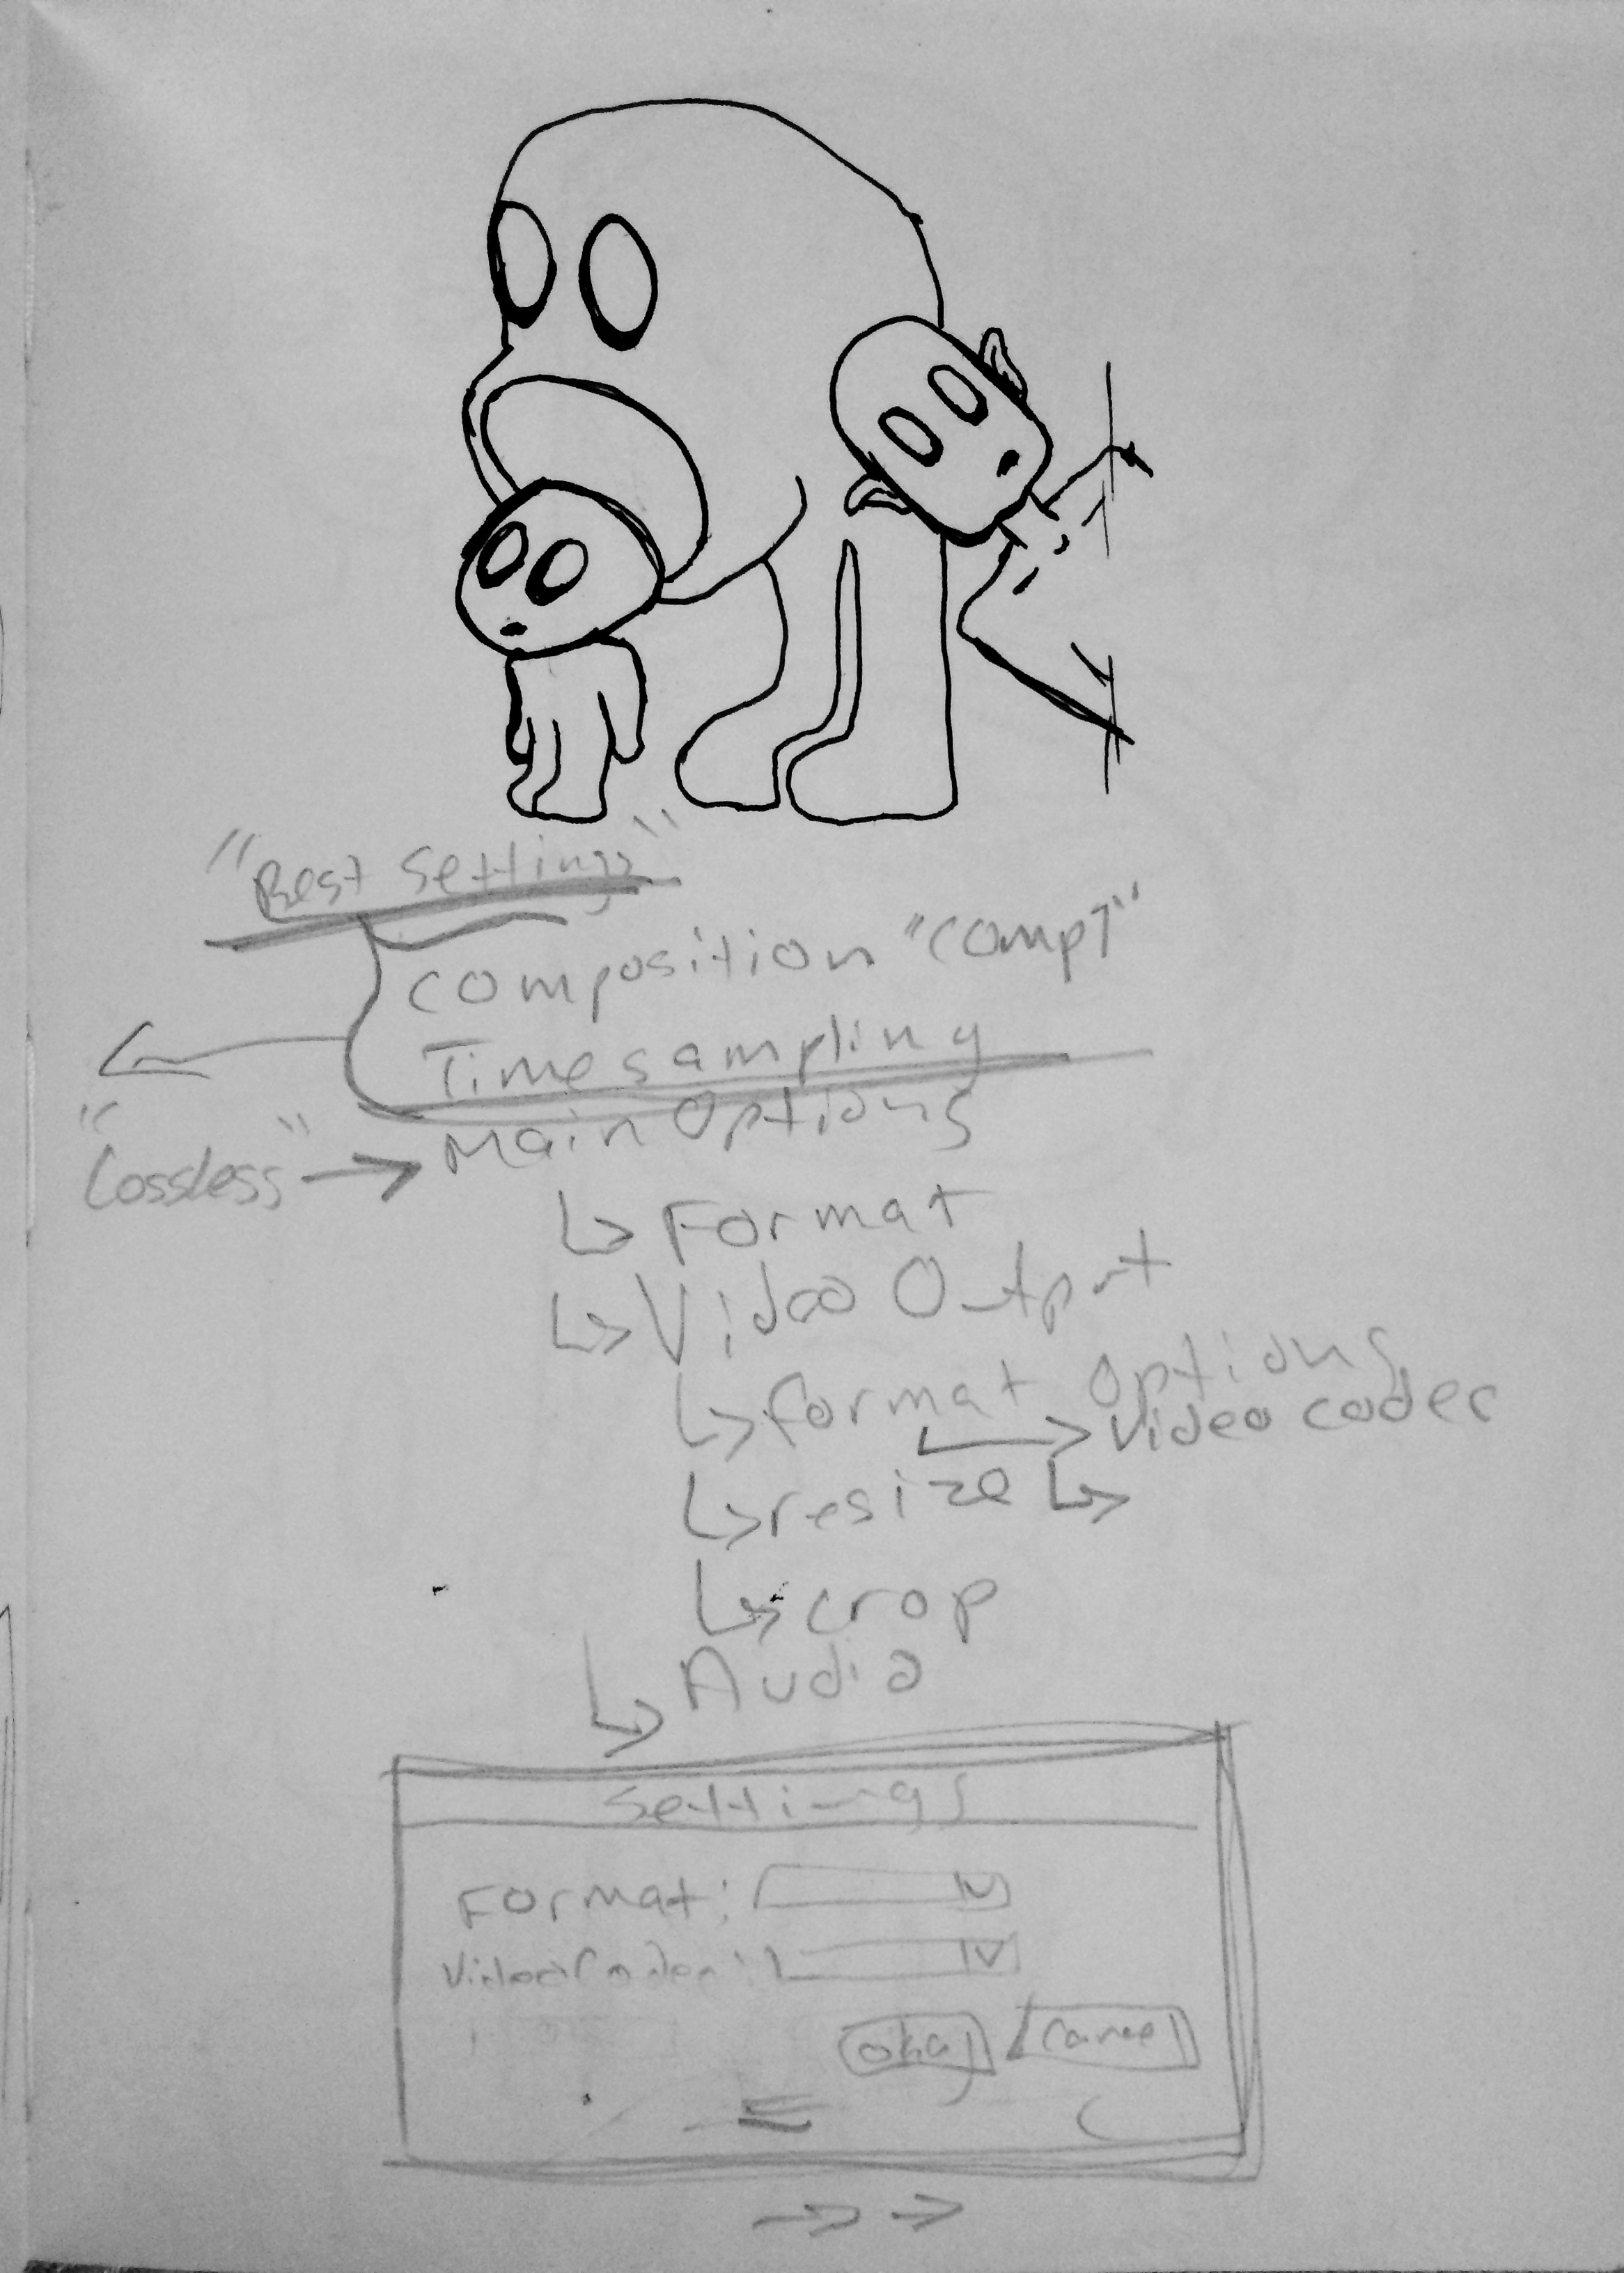 "Best Settings"
composition "comp1"
Time sampling
"Lossless" → Main Options
↳ Format
↳ Video Output
↳ Format Options
↳ Video codec
↳ resize ↳
↳ crop
↳ Audio
Settings
Format:
Video Codec:
okay cancel